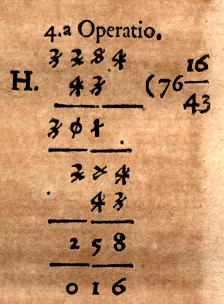 4.a Operatio.
3 2 8 4
H. 4 3 (76 16/43
3 0 1
2 7 4
4 3
2 5 8
0 1 6